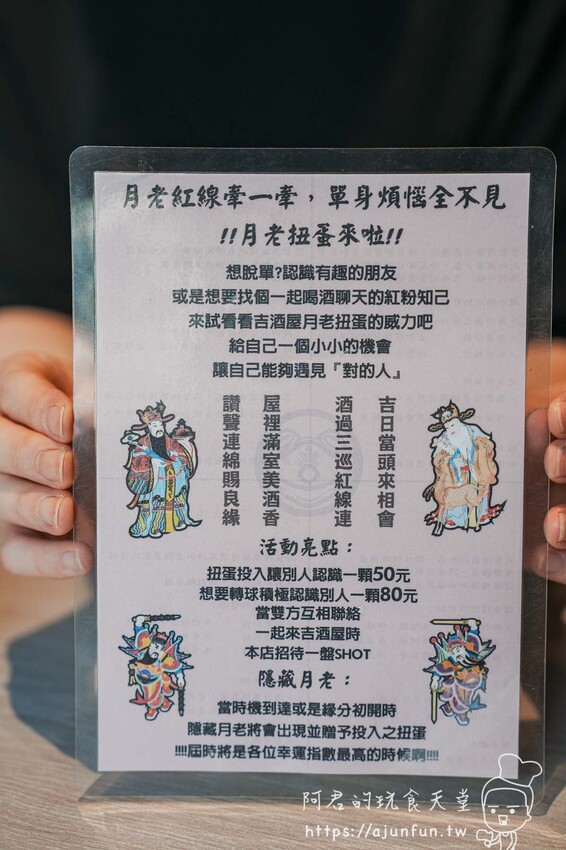 月老紅線牽一牽，單身煩惱全不見
!!月老扭蛋來啦!!
想脫單?認識有趣的朋友
或是想要找個一起喝酒聊天的紅粉知己
來試看看吉酒屋月老扭蛋的威力吧
給自己一個小小的機會
讓自己能夠遇見『對的人』
吉日當頭來相會
酒過三巡紅線連
屋裡滿室美酒香
讚聲連綿賜良緣
活動亮點：
扭蛋投入讓別人認識一顆50元
想要轉球積極認識別人一顆80元
當雙方互相聯絡
一起來吉酒屋時
本店招待一盤SHOT
隱藏月老：
當時機到達或是緣分初開時
隱藏月老將會出現並贈予投入之扭蛋
!!!!屆時將是各位幸運指數最高的時候啊!!!!
阿君的玩食天堂
https://ajunfun.tw